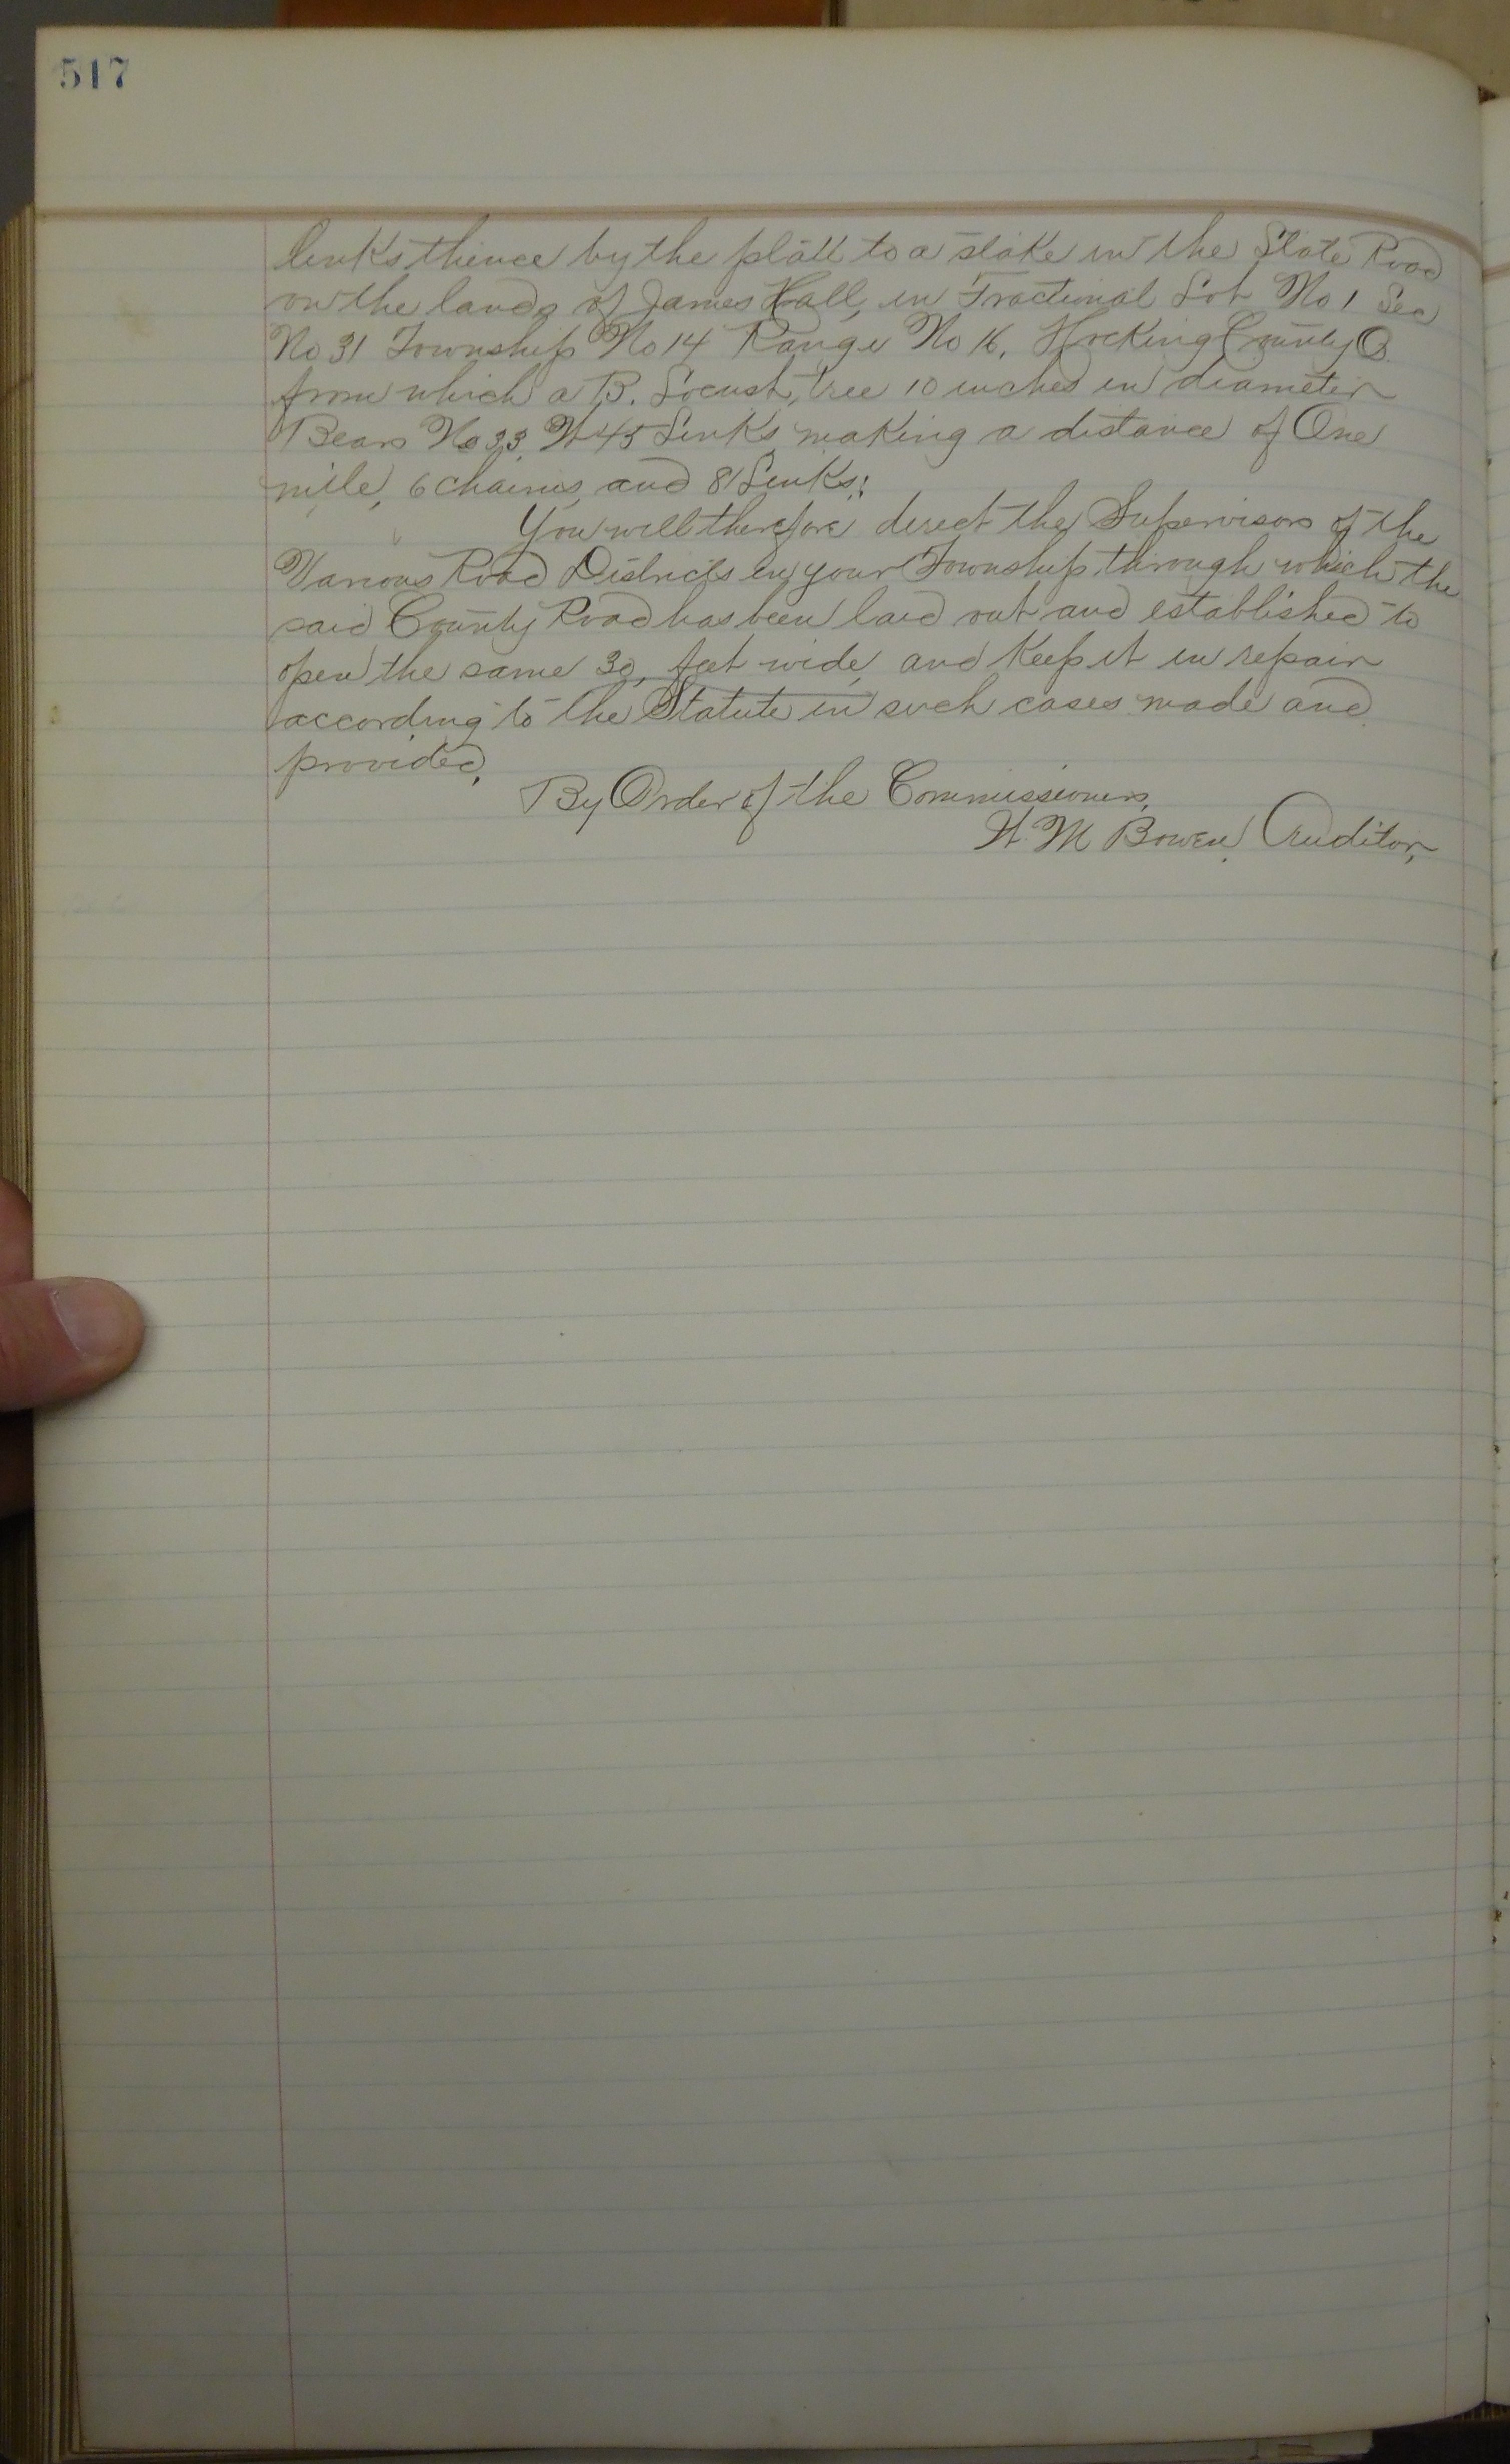 517
links thence by the platt to a stake in the State Road
on the lands of James Hall, in Fractional Lot No 1 Sec
No 31 Township No 14 Range No 16, Hocking County O.
from which a B. Locust, tree 10 inches in diameter
Bears No 33, W 45 Links making a distance of One
mile, 6 chains and 81 Links;
You will therefore direct the Supervisors of the
Various Road Districts in your Township through which the
said County Road has been laid out and established to
open the same 30, feet wide, and Keep it in repair
according to the Statute in such cases made and
provided,
By Order of the Commissioners,
W. M Bowen, Auditor,